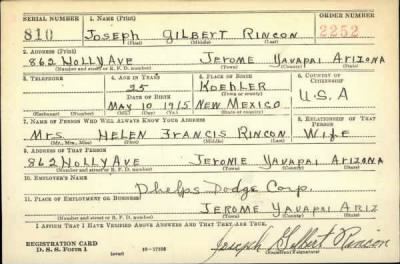 SERIAL NUMBER 1. NAME (Print) ORDER NUMBER
810 JOSEPH GILBERT RINCON 2252
(First) (Middle) (Last)
2. ADDRESS (Print)
862 HOLLY AVE JEROME YAVAPAI ARIZONA
(Number and street or R. F. D. number) (Town) (County) (State)
3. TELEPHONE 4. AGE IN YEARS 5. PLACE OF BIRTH 6. COUNTRY OF CITIZENSHIP
25 KOEHLER
DATE OF BIRTH (Town or county)
MAY 10 1915 NEW MEXICO U.S.A
(Exchange) (Number) (Mo.) (Day) (Yr.) (State or country)
7. NAME OF PERSON WHO WILL ALWAYS KNOW YOUR ADDRESS 8. RELATIONSHIP OF THAT PERSON
MRS. HELEN FRANCIS RINCON WIFE
(Mr., Mrs., Miss) (First) (Middle) (Last)
9. ADDRESS OF THAT PERSON
862 HOLLY AVE JEROME YAVAPAI ARIZONA
(Number and street or R. F. D. number) (Town) (County) (State)
10. EMPLOYER'S NAME
Phelps Dodge Corp.
11. PLACE OF EMPLOYMENT OR BUSINESS
JEROME YAVAPAI ARIZ
(Number and street or R. F. D. number) (Town) (County) (State)
I AFFIRM THAT I HAVE VERIFIED ABOVE ANSWERS AND THAT THEY ARE TRUE.
REGISTRATION CARD
D. S. S. FORM 1 (over) Joseph Gilbert Rincon